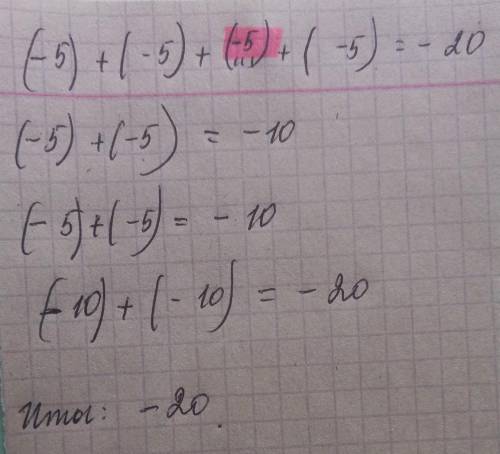 (-5) + (-5) + (-5) + ( -5) = - 20
(-5) + (-5) = -10
(- 5) + (-5) = - 10
(- 10) + (- 10) = - 20
Итог: -20.